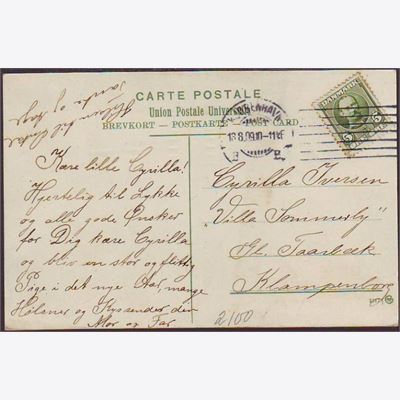 CARTE POSTALE
Union Postale Universelle
BREVKORT – POSTKARTE – POST CARD
KJØBENHAVN
18.8.09.10-11F.
B.
DANMARK
5 5
Hilsen til
tante og
Kære lille Cyrilla!
Hjertelig til Lykke
og alle gode Ønsker
for Dig kære Cyrilla
og bliv en stor og flittig
Pige i det nye Aar, mange
Hilsner og Kys sender din
Mor og Far
Cyrilla Iversen
„Villa Sommerly"
Gl. Taarbæk
Klampenborg
2/00